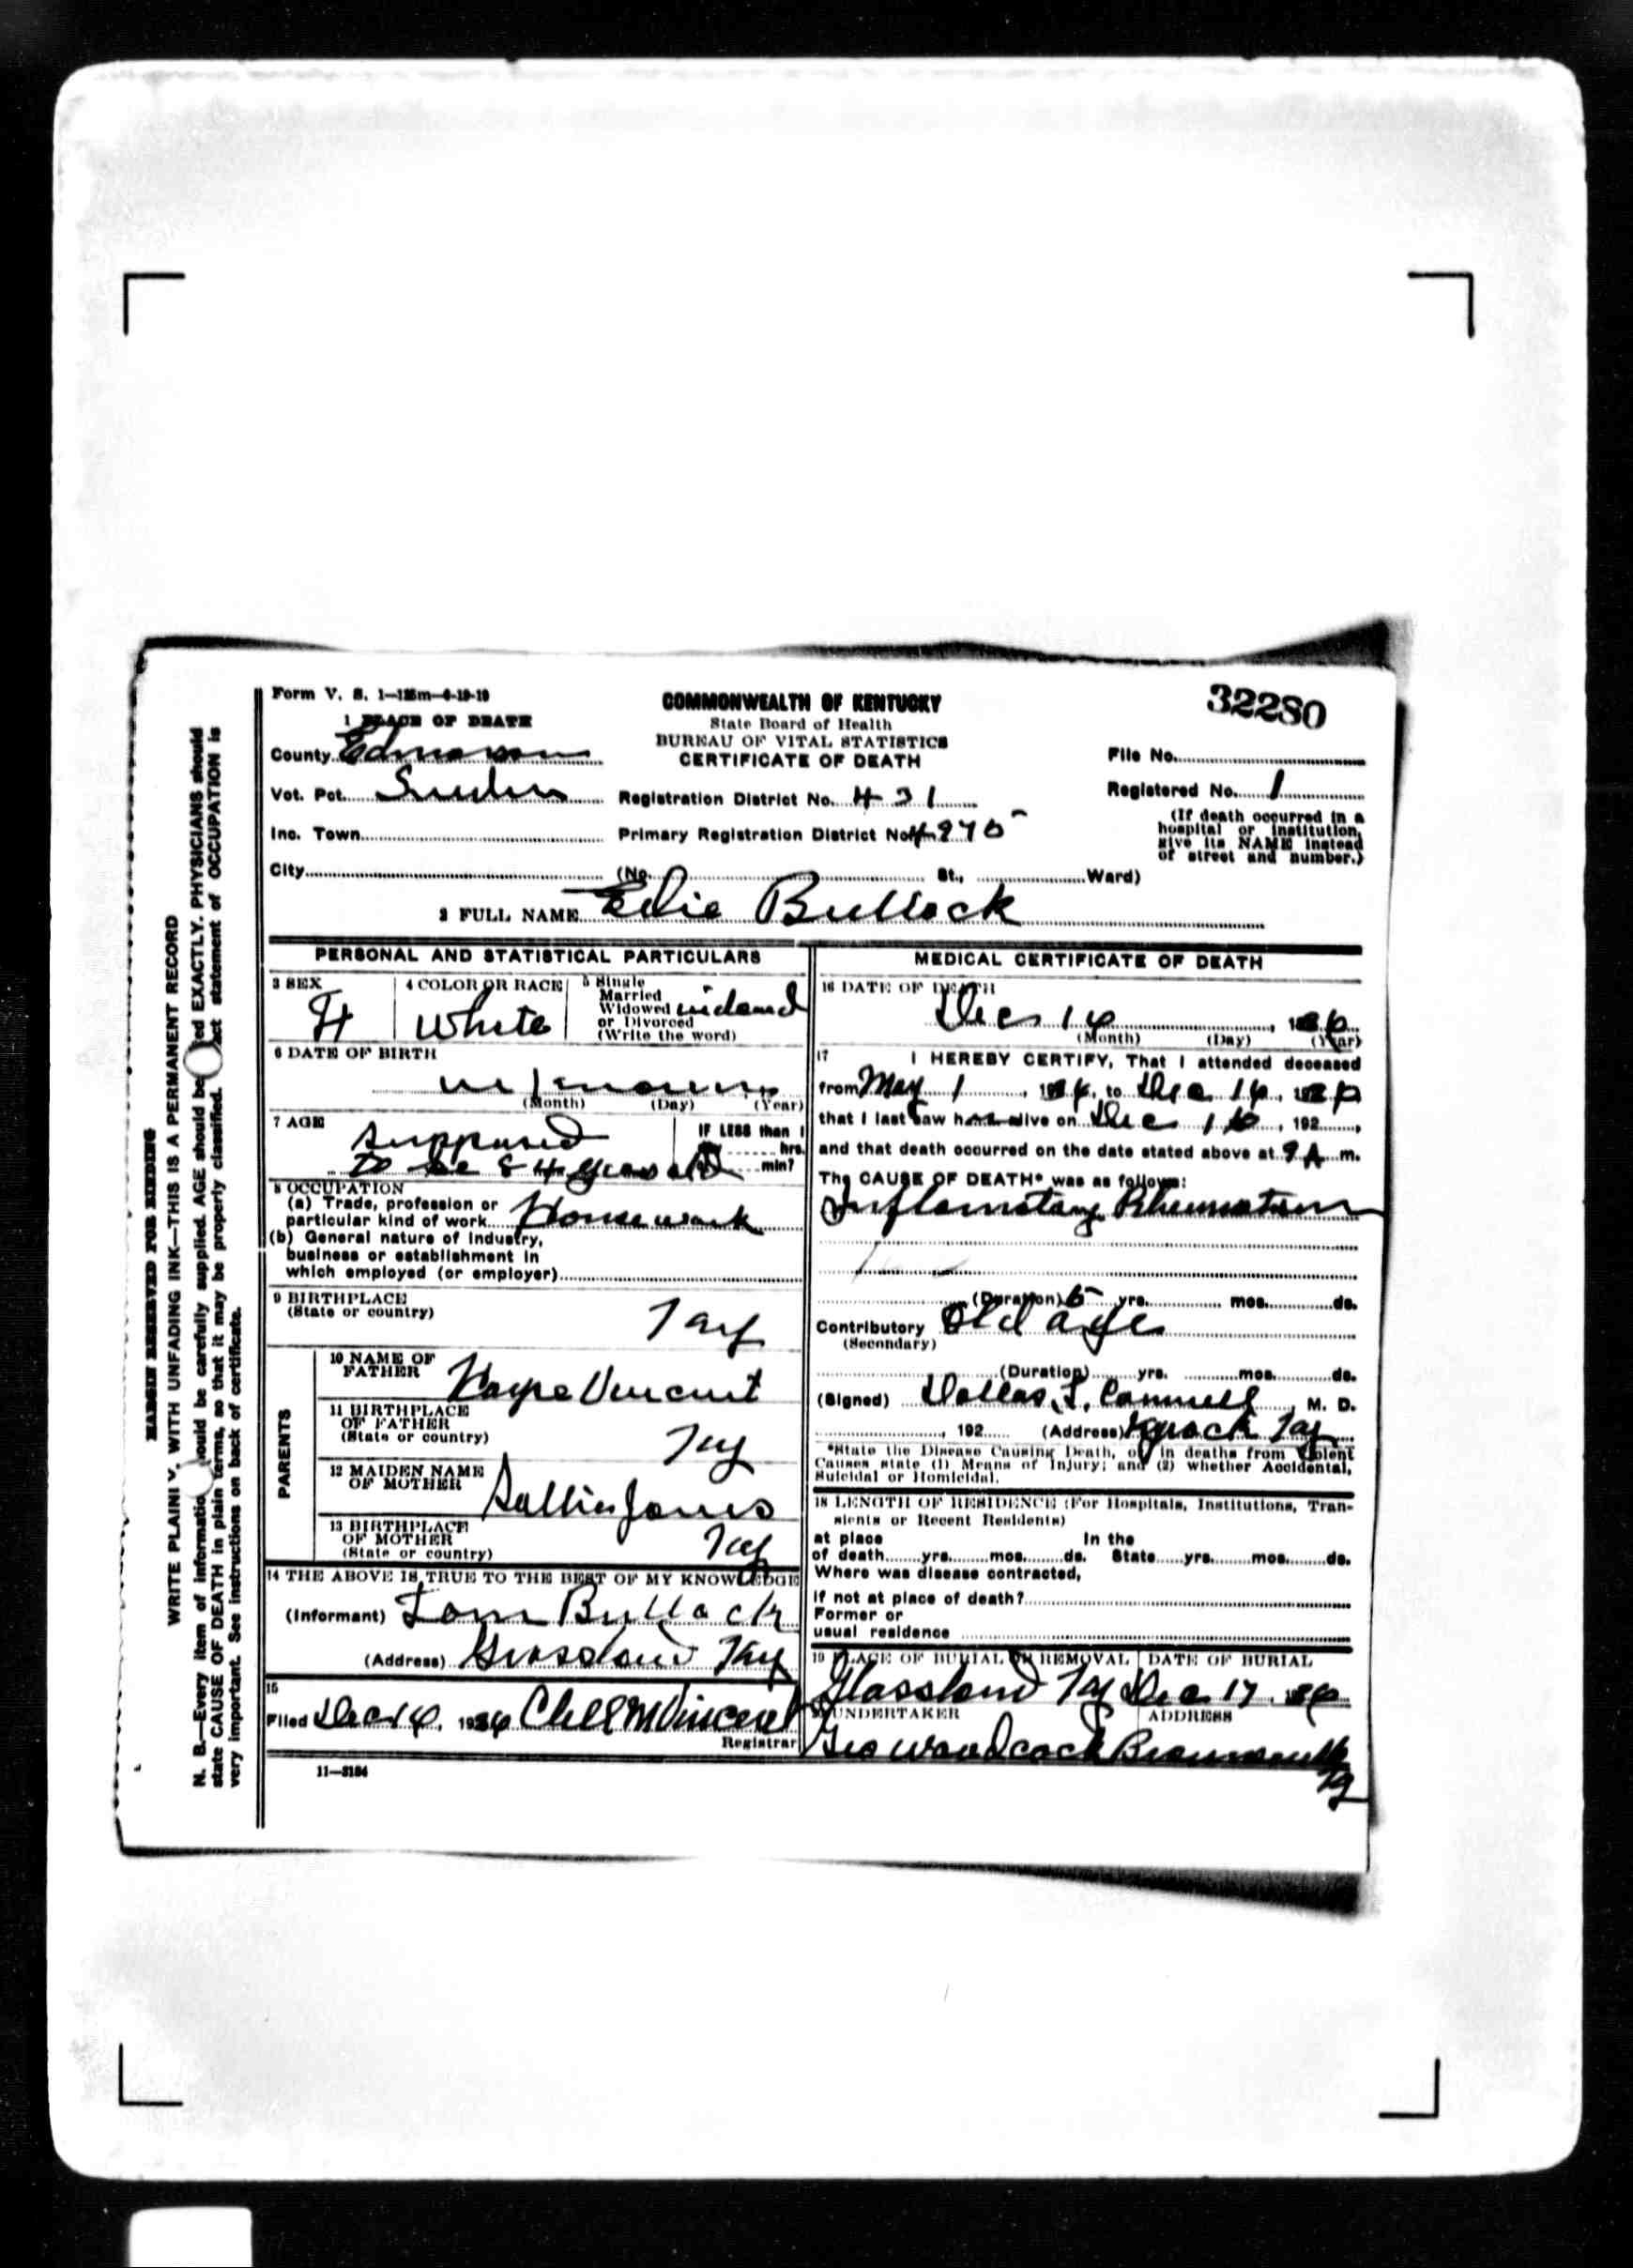 Form V. S. 1—125m—6-19-19
COMMONWEALTH OF KENTUCKY
State Board of Health
BUREAU OF VITAL STATISTICS
CERTIFICATE OF DEATH
32280
1 PLACE OF DEATH
County Edmonson
File No.
Vot. Pct.
Registration District No. 431
Registered No. 1
Inc. Town
Primary Registration District No.
(If death occurred in a hospital or institution, give its NAME instead of street and number.)
City (No. St., Ward)
2 FULL NAME Bullock
MARGIN RESERVED FOR BINDING
WRITE PLAINLY, WITH UNFADING INK—THIS IS A PERMANENT RECORD
N. B.—Every item of information should be carefully supplied. AGE should be stated EXACTLY. PHYSICIANS should
state CAUSE OF DEATH in plain terms, so that it may be properly classified. Exact statement of OCCUPATION is
very important. See instructions on back of certificate.
PERSONAL AND STATISTICAL PARTICULARS
3 SEX F
4 COLOR OR RACE White
5 Single
Married
Widowed widowed
or Divorced
(Write the word)
6 DATE OF BIRTH
unknown
(Month) (Day) (Year)
7 AGE supposed
to be 84 years old
IF LESS than 1
hrs.
min?
8 OCCUPATION
(a) Trade, profession or
particular kind of work House work
(b) General nature of Industry,
business or establishment in
which employed (or employer)
9 BIRTHPLACE
(State or country) Ky
PARENTS
10 NAME OF
FATHER Vincent
11 BIRTHPLACE
OF FATHER
(State or country) Ky
12 MAIDEN NAME
OF MOTHER Sallie Jones
13 BIRTHPLACE
OF MOTHER
(State or country) Ky
14 THE ABOVE IS TRUE TO THE BEST OF MY KNOWLEDGE
(Informant) Tom Bullock
(Address) Ky
15
Filed Dec 16, 1926 Vincent
Registrar
11—3184
MEDICAL CERTIFICATE OF DEATH
16 DATE OF DEATH
Dec 16, 1926
(Month) (Day) (Year)
17 I HEREBY CERTIFY, That I attended deceased
from May 1, 1926, to Dec 16, 1926
that I last saw her alive on Dec 16, 192
and that death occurred on the date stated above at 9 A m.
The CAUSE OF DEATH* was as follows:
Inflamatory Rheumatism
(Duration) yrs. mos. ds.
Contributory Old age
(Secondary)
(Duration) yrs. mos. ds.
(Signed) Dallas, M. D.
, 192 (Address) Kyrock Ky
*State the Disease Causing Death, or in deaths from Violent
Causes state (1) Means of Injury; and (2) whether Accidental,
Suicidal or Homicidal.
18 LENGTH OF RESIDENCE (For Hospitals, Institutions, Tran-
sients or Recent Residents)
at place In the
of death yrs. mos. ds. State yrs. mos. ds.
Where was disease contracted,
If not at place of death?
Former or
usual residence
19 PLACE OF BURIAL OR REMOVAL DATE OF BURIAL
Ky Dec 17, 1926
20 UNDERTAKER ADDRESS
Geo Woodcock Brownsville
Ky